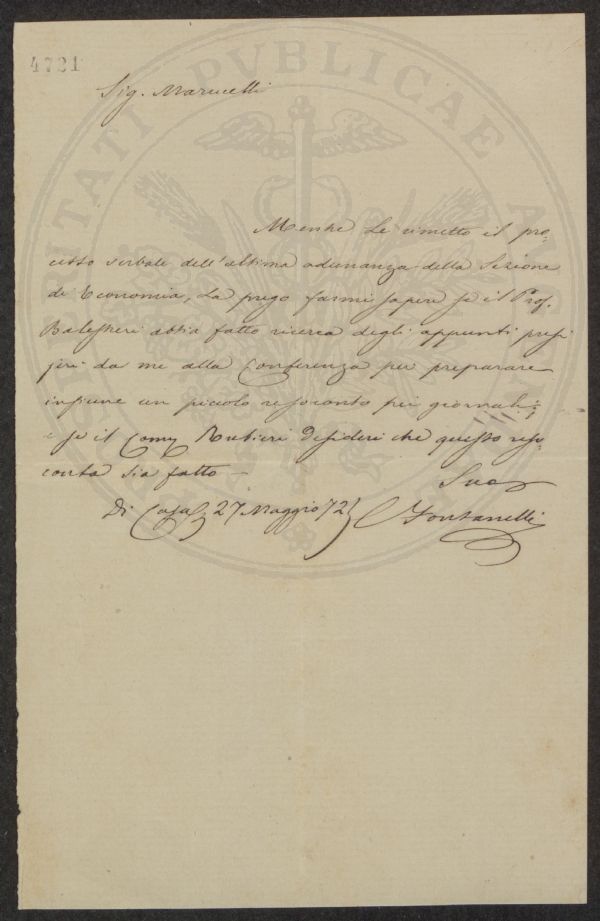 4721
Sig. Marucelli
Mentre Le rimetto il pro-
cesso verbale dell'ultima adunanza della Sezione
di Economia, La prego farmi sapere se il Prof.
Balestreri abbia fatto ricerca degli appunti presi
jeri da me alla Conferenza per preparare
insieme un piccolo resoconto pei giornali;
e se il Comm Rubieri desideri che questo reso-
conto sia fatto —
Suo
Di Casa 27 Maggio 72
C Fontanelli
PVBLICAE